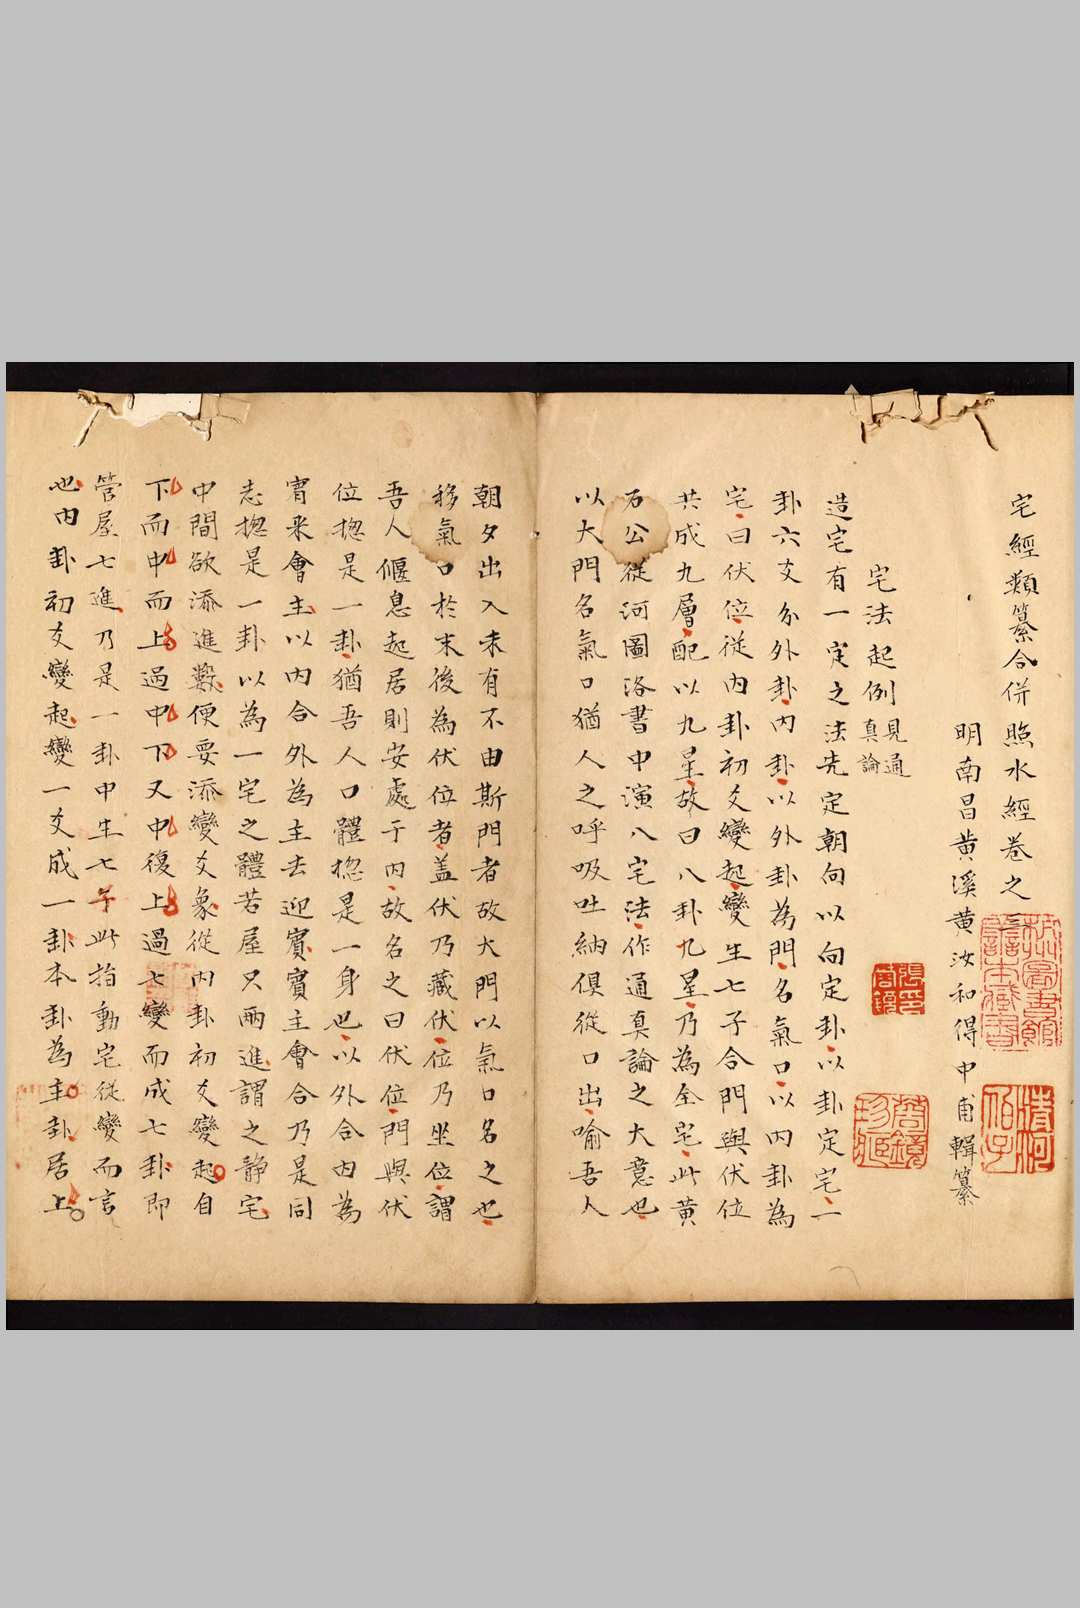 宅經類纂合併照水經卷之一
明南昌黃溪黃汝和得中甫輯纂
宅法起例見通真論
造宅有一定之法先定朝向以向定卦以卦定宅一
卦六爻分外卦內卦以外卦為門名氣口以內卦為
宅曰伏位從內卦初爻變起變生七子合門與伏位
共成九層配以九星故曰八卦九星乃為全宅此黃
石公從河圖洛書中演八宅法作通真論之大意也
以大門名氣口猶人之呼吸吐納俱從口出喻吾人
朝夕出入未有不由斯門者故大門以氣口名之也
移氣口於末後為伏位者蓋伏乃藏伏位乃坐位謂
吾人偃息起居則安處于內故名之曰伏位門與伏
位揔是一卦猶吾人口體揔是一身也以外合內為
賓来會主以內合外為主去迎賓賓主會合乃是同
志揔是一卦以為一宅之體若屋只兩進謂之靜宅
中間欲添進數便要添變爻象從內卦初爻變起自
下而中而上過中下又中復上過七變而成七卦即
管屋七進乃是一卦中生七子此指動宅從變而言
也內卦初爻變起變一爻成一卦本卦為主卦居上